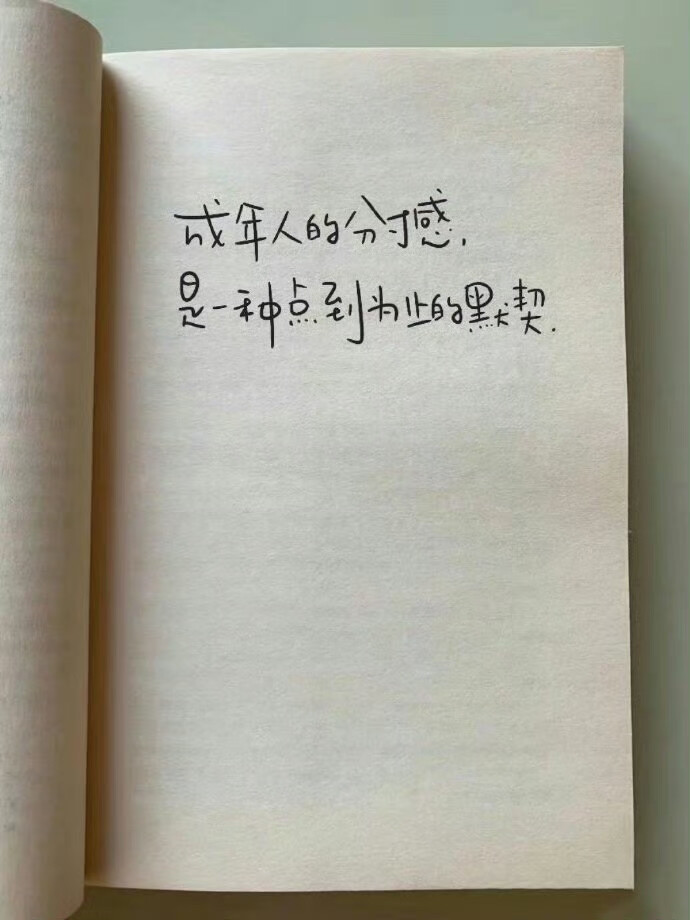 成年人的分寸感，
是一种点到为止的默契.